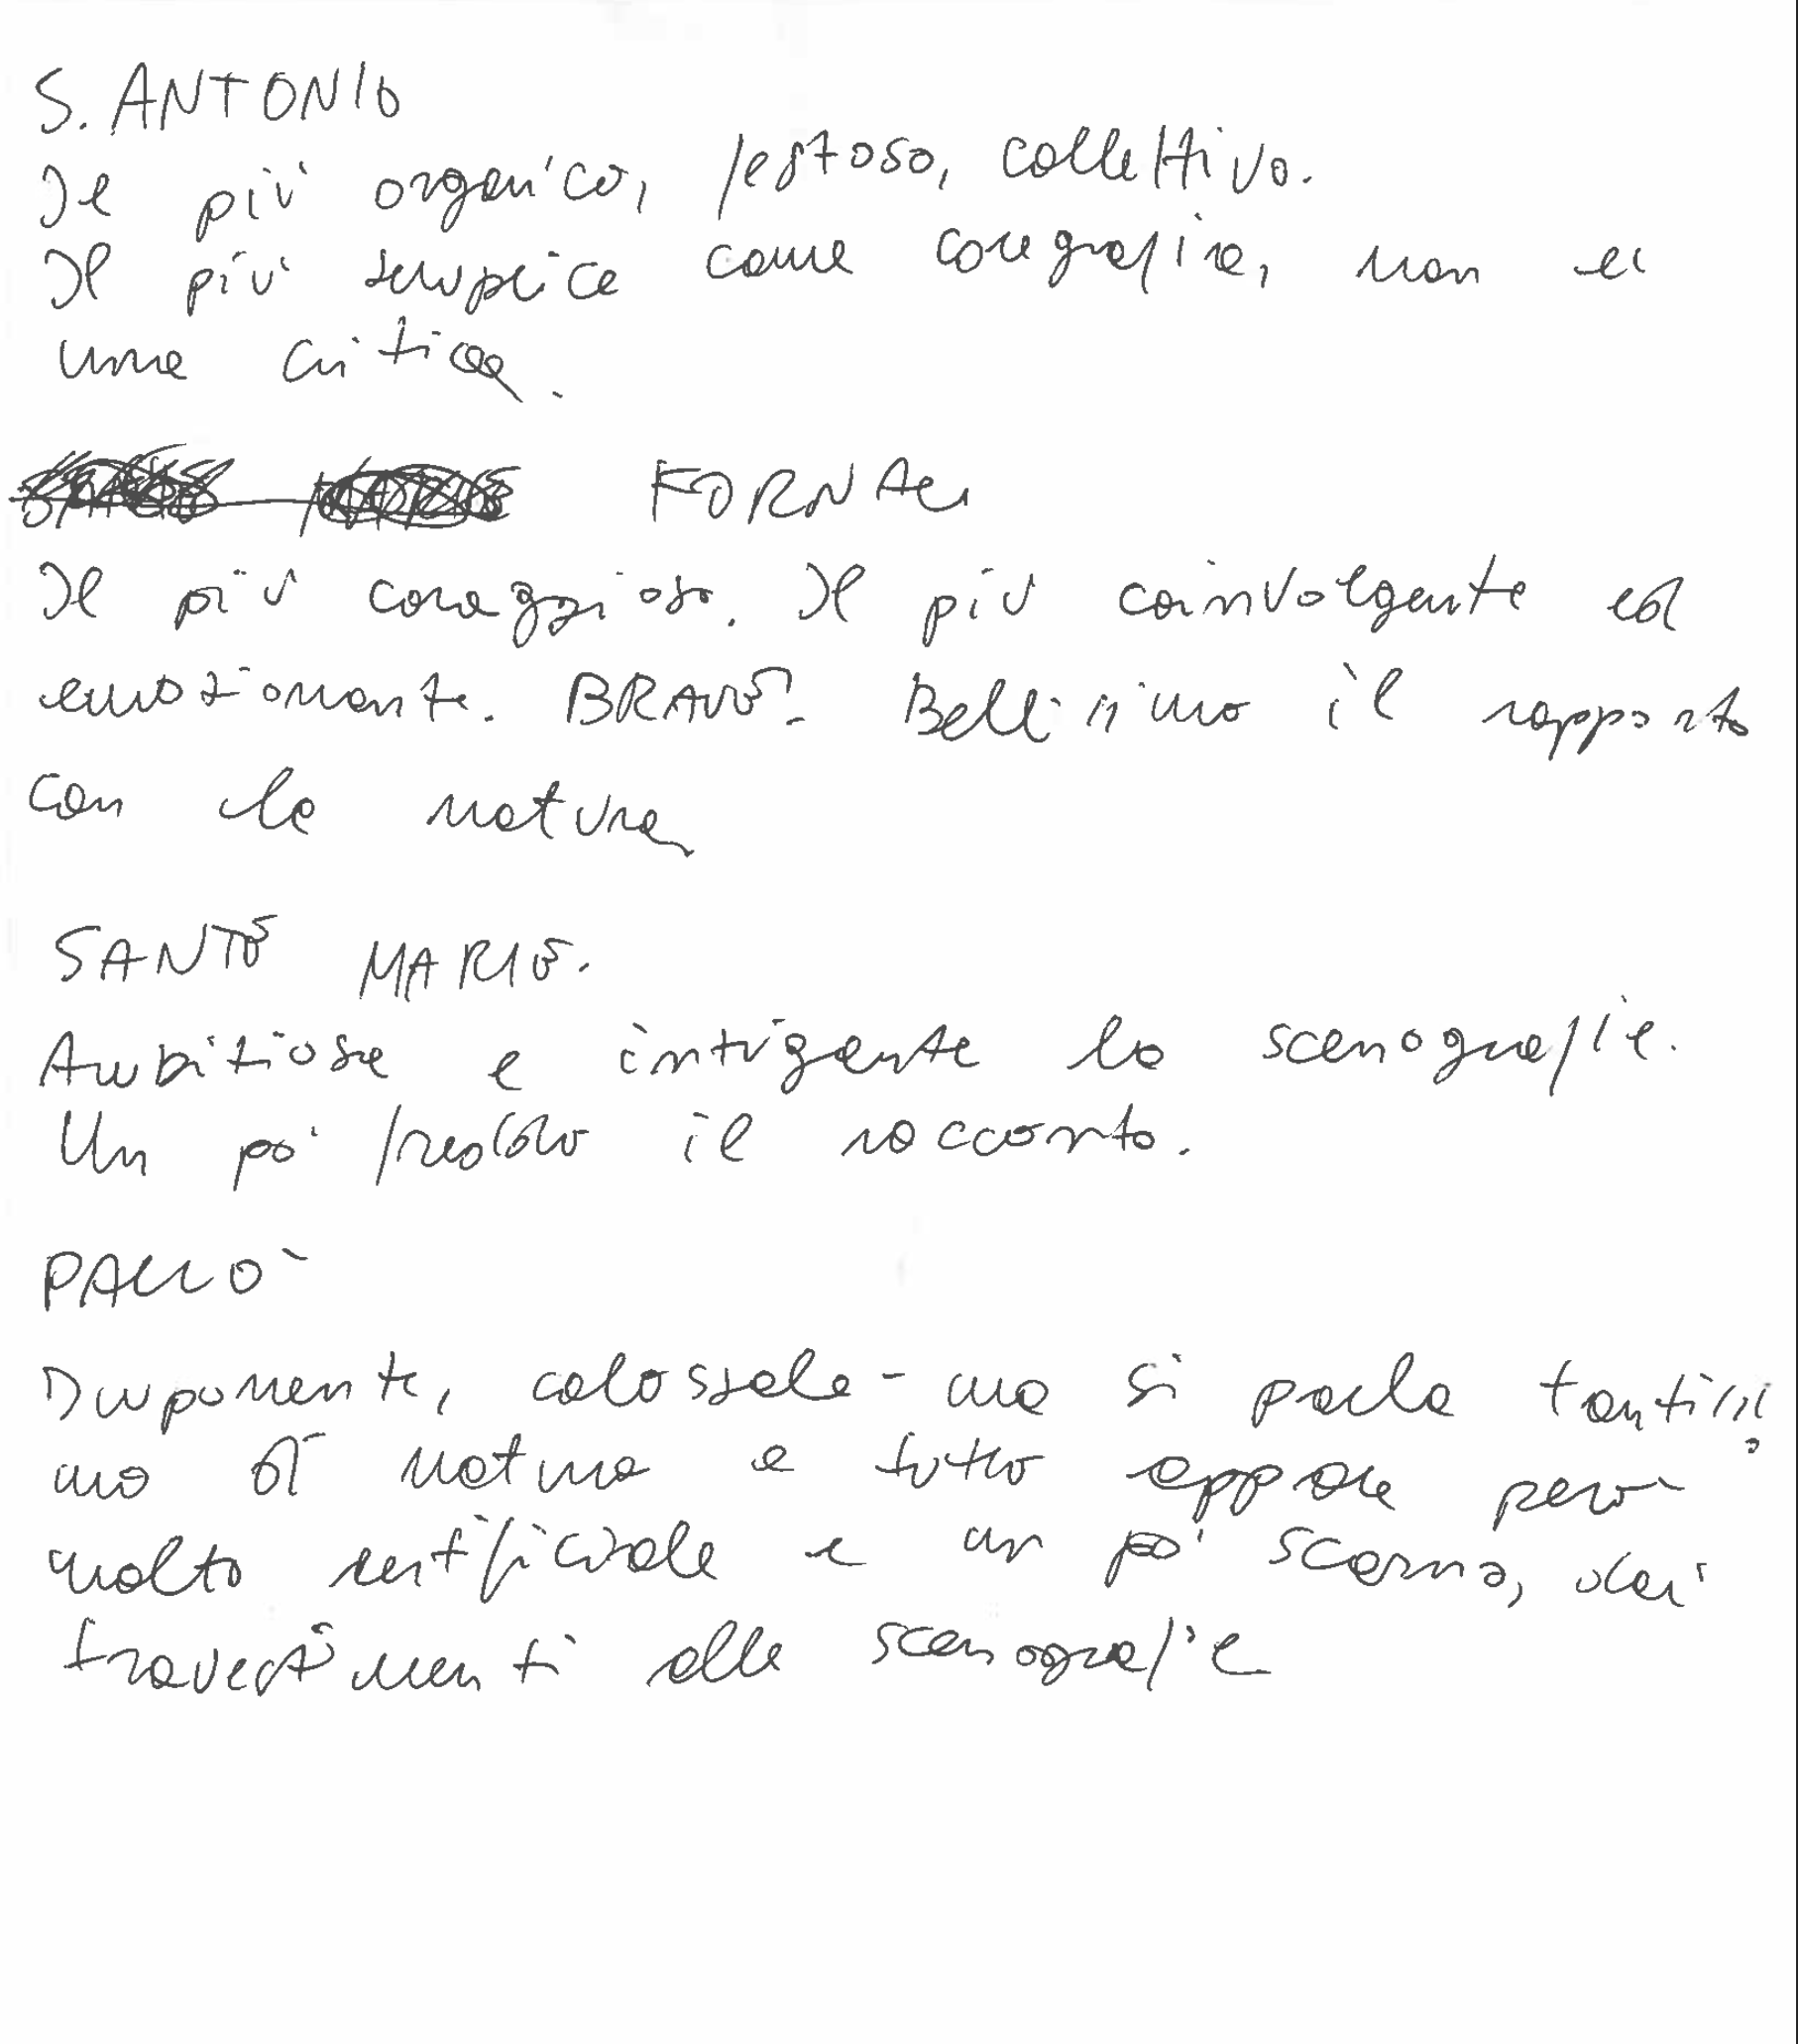 S. ANTONIO
Il più organico, festoso, collettivo.
Il più semplice come coregrafia, non è
una critica.
FORNACI
Il più coraggioso. Il più coinvolgente ed
emozionante. BRAVO! Bellissimo il rapporto
con la natura
SANTO MARIE.
Ambitiosa e intrigante la scenografia.
Un po' freddo il racconto.
PALLÒ
Imponente, colossale - ma si parla tantissi
mo di natura e tutto appare però
molto artificiale e un po' scarno, dai
travestimenti alle scenografie